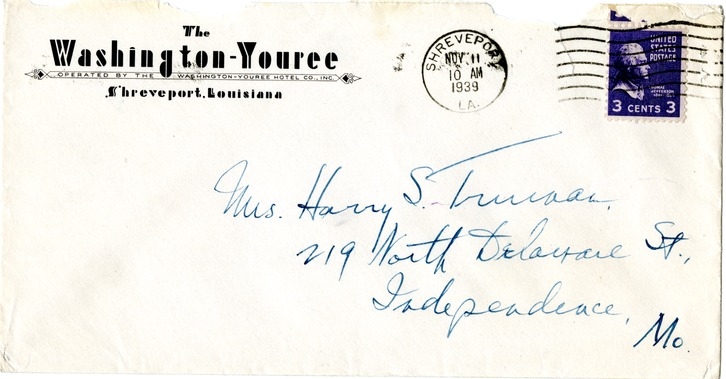 The
Washington-Youree
OPERATED BY THE WASHINGTON-YOUREE HOTEL CO., INC.
Shreveport, Louisiana
SHREVEPORT
NOV 11
10 AM
1939
LA.
UNITED
STATES
POSTAGE
JEFFERSON
3 CENTS 3
Mrs. Harry S. Truman.
219 North Delaware St.,
Independence,
Mo.